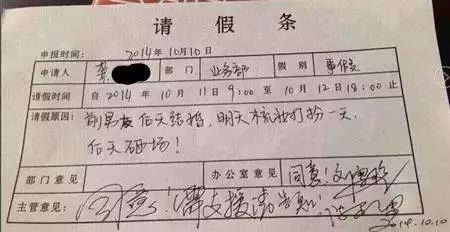 请假条
申报时间： 2014年10月10日
申请人 龚 部门 业务部 假别 事假
请假时间 自2014年10月11日9:00至10月12日18:00止
请假原因： 前男友后天结婚，明天梳妆打扮一天，
后天砸场！
部门意见 办公室意见 同意！
主管意见： 同意！需支援请告知！
2014.10.10